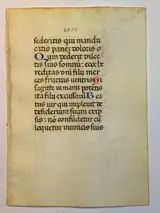 sederitis qui mandu
catis panem doloris
Cum dederit dilec
tis suis somnum: ecce he
reditas domini filii mer
ces fructus ventris
sagitte in manu poten
tis ita filii excussorum
atus vir qui implevit de
siderium suum ex
non confundetur cum
loquetur inimicis suis